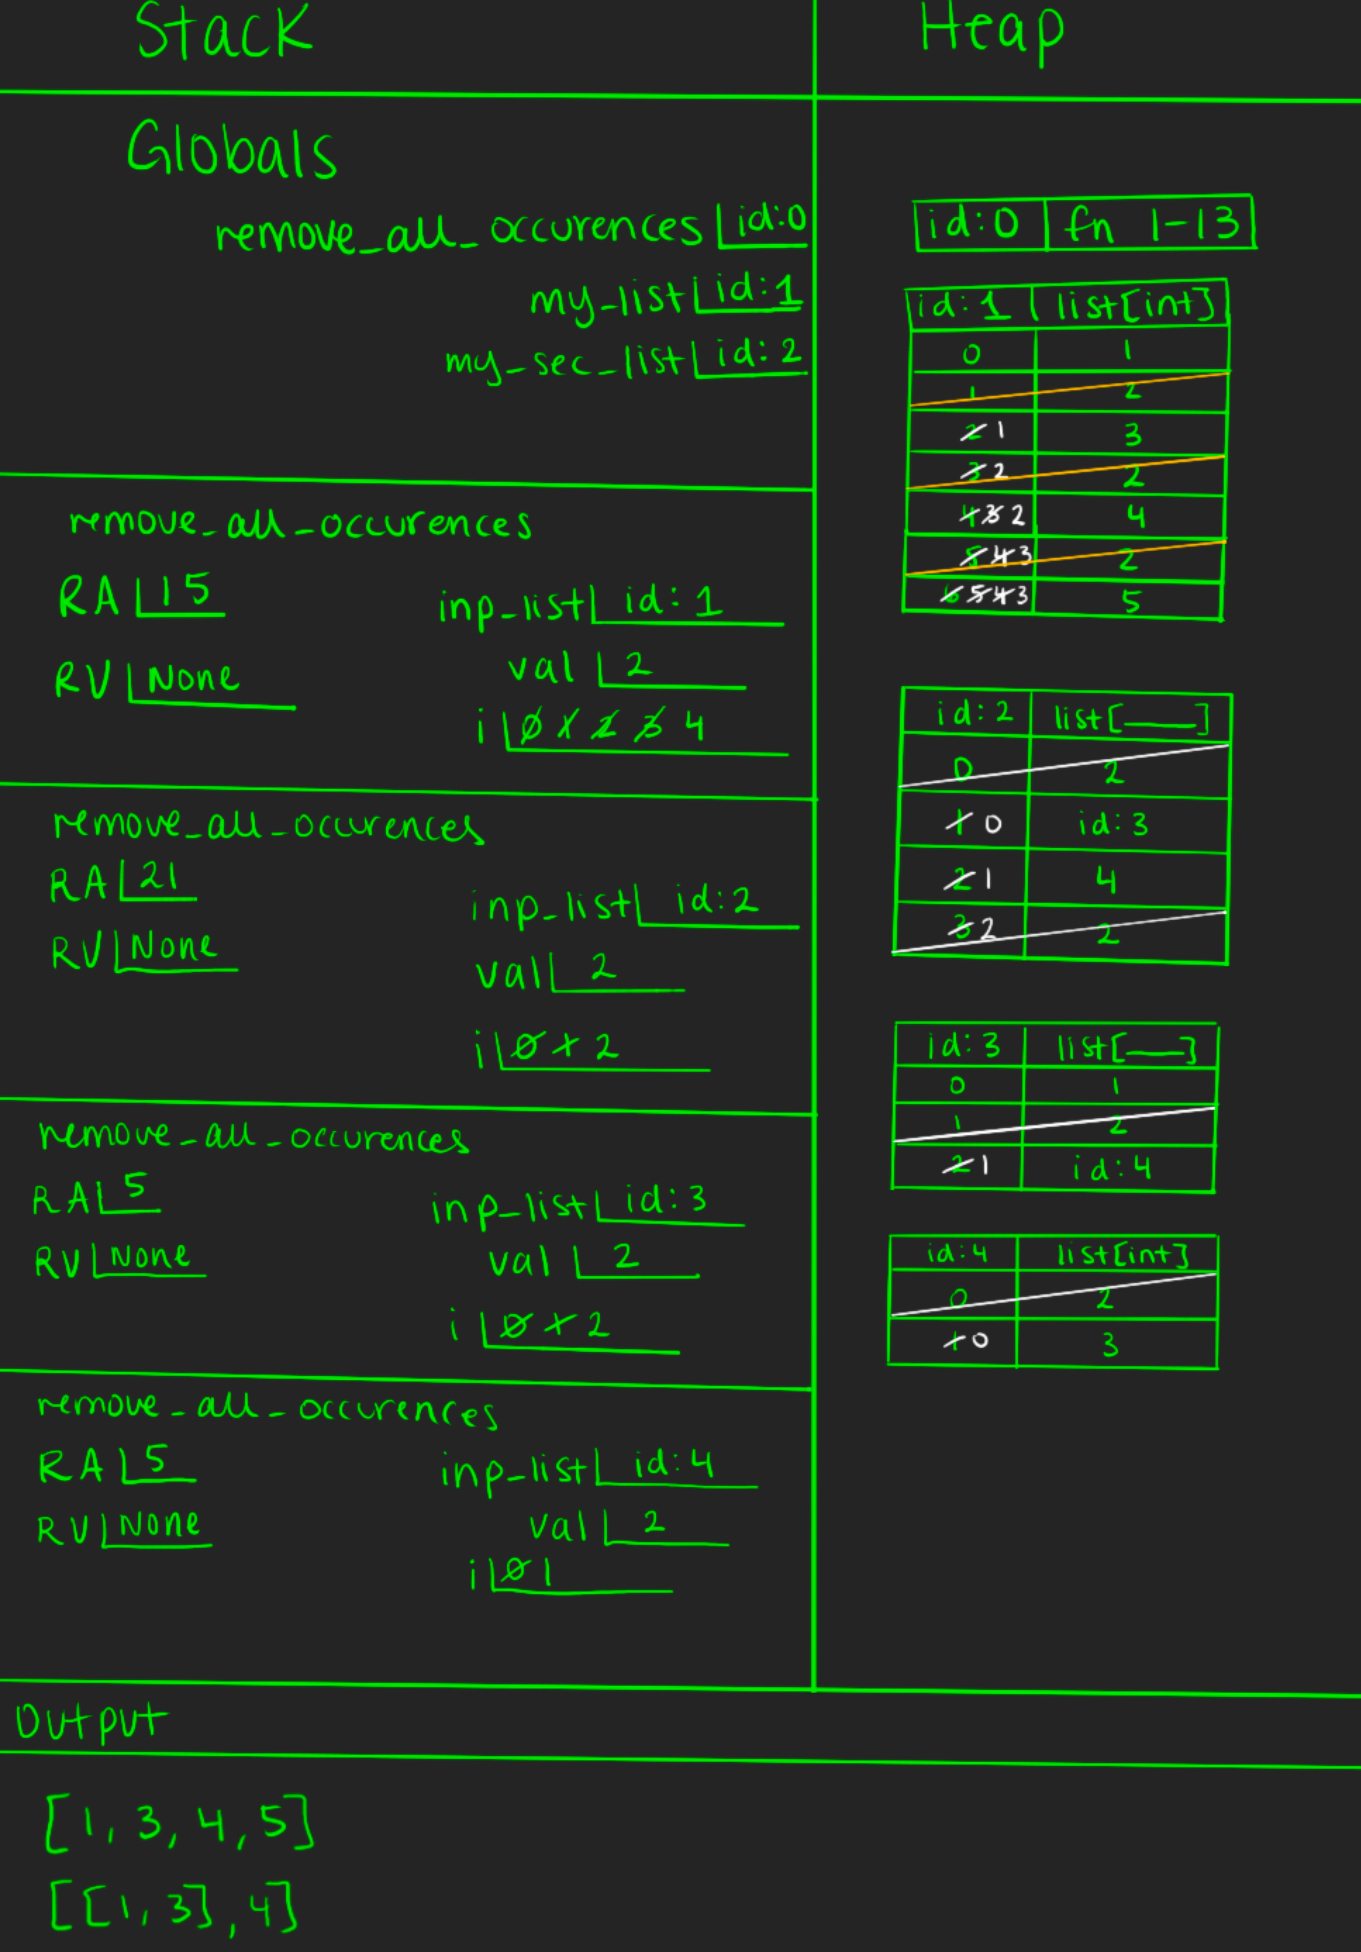 Stack
Heap
Globals
remove_all_occurences id:0
my_list id:1
my_sec_list id:2
remove_all_occurences
RA 15
inp_list id:1
RV None
val 2
i 0 1 2 3 4
remove_all_occurences
RA 21
inp_list id:2
RV None
val 2
i 0 1 2
remove_all_occurences
RA 5
inp_list id:3
RV None
val 2
i 0 1 2
remove_all_occurences
RA 5
inp_list id:4
RV None
val 2
i 0 1
id:0 fn 1-13
id:1 list[int]
0 1
1 2
2 1 3
3 2 2
4 3 2 4
5 4 3 2
6 5 4 3 5
id:2 list[___]
0 2
1 0 id:3
2 1 4
3 2 2
id:3 list[___]
0 1
1 2
2 1 id:4
id:4 list[int]
0 2
1 0 3
Output
[1, 3, 4, 5]
[[1, 3], 4]